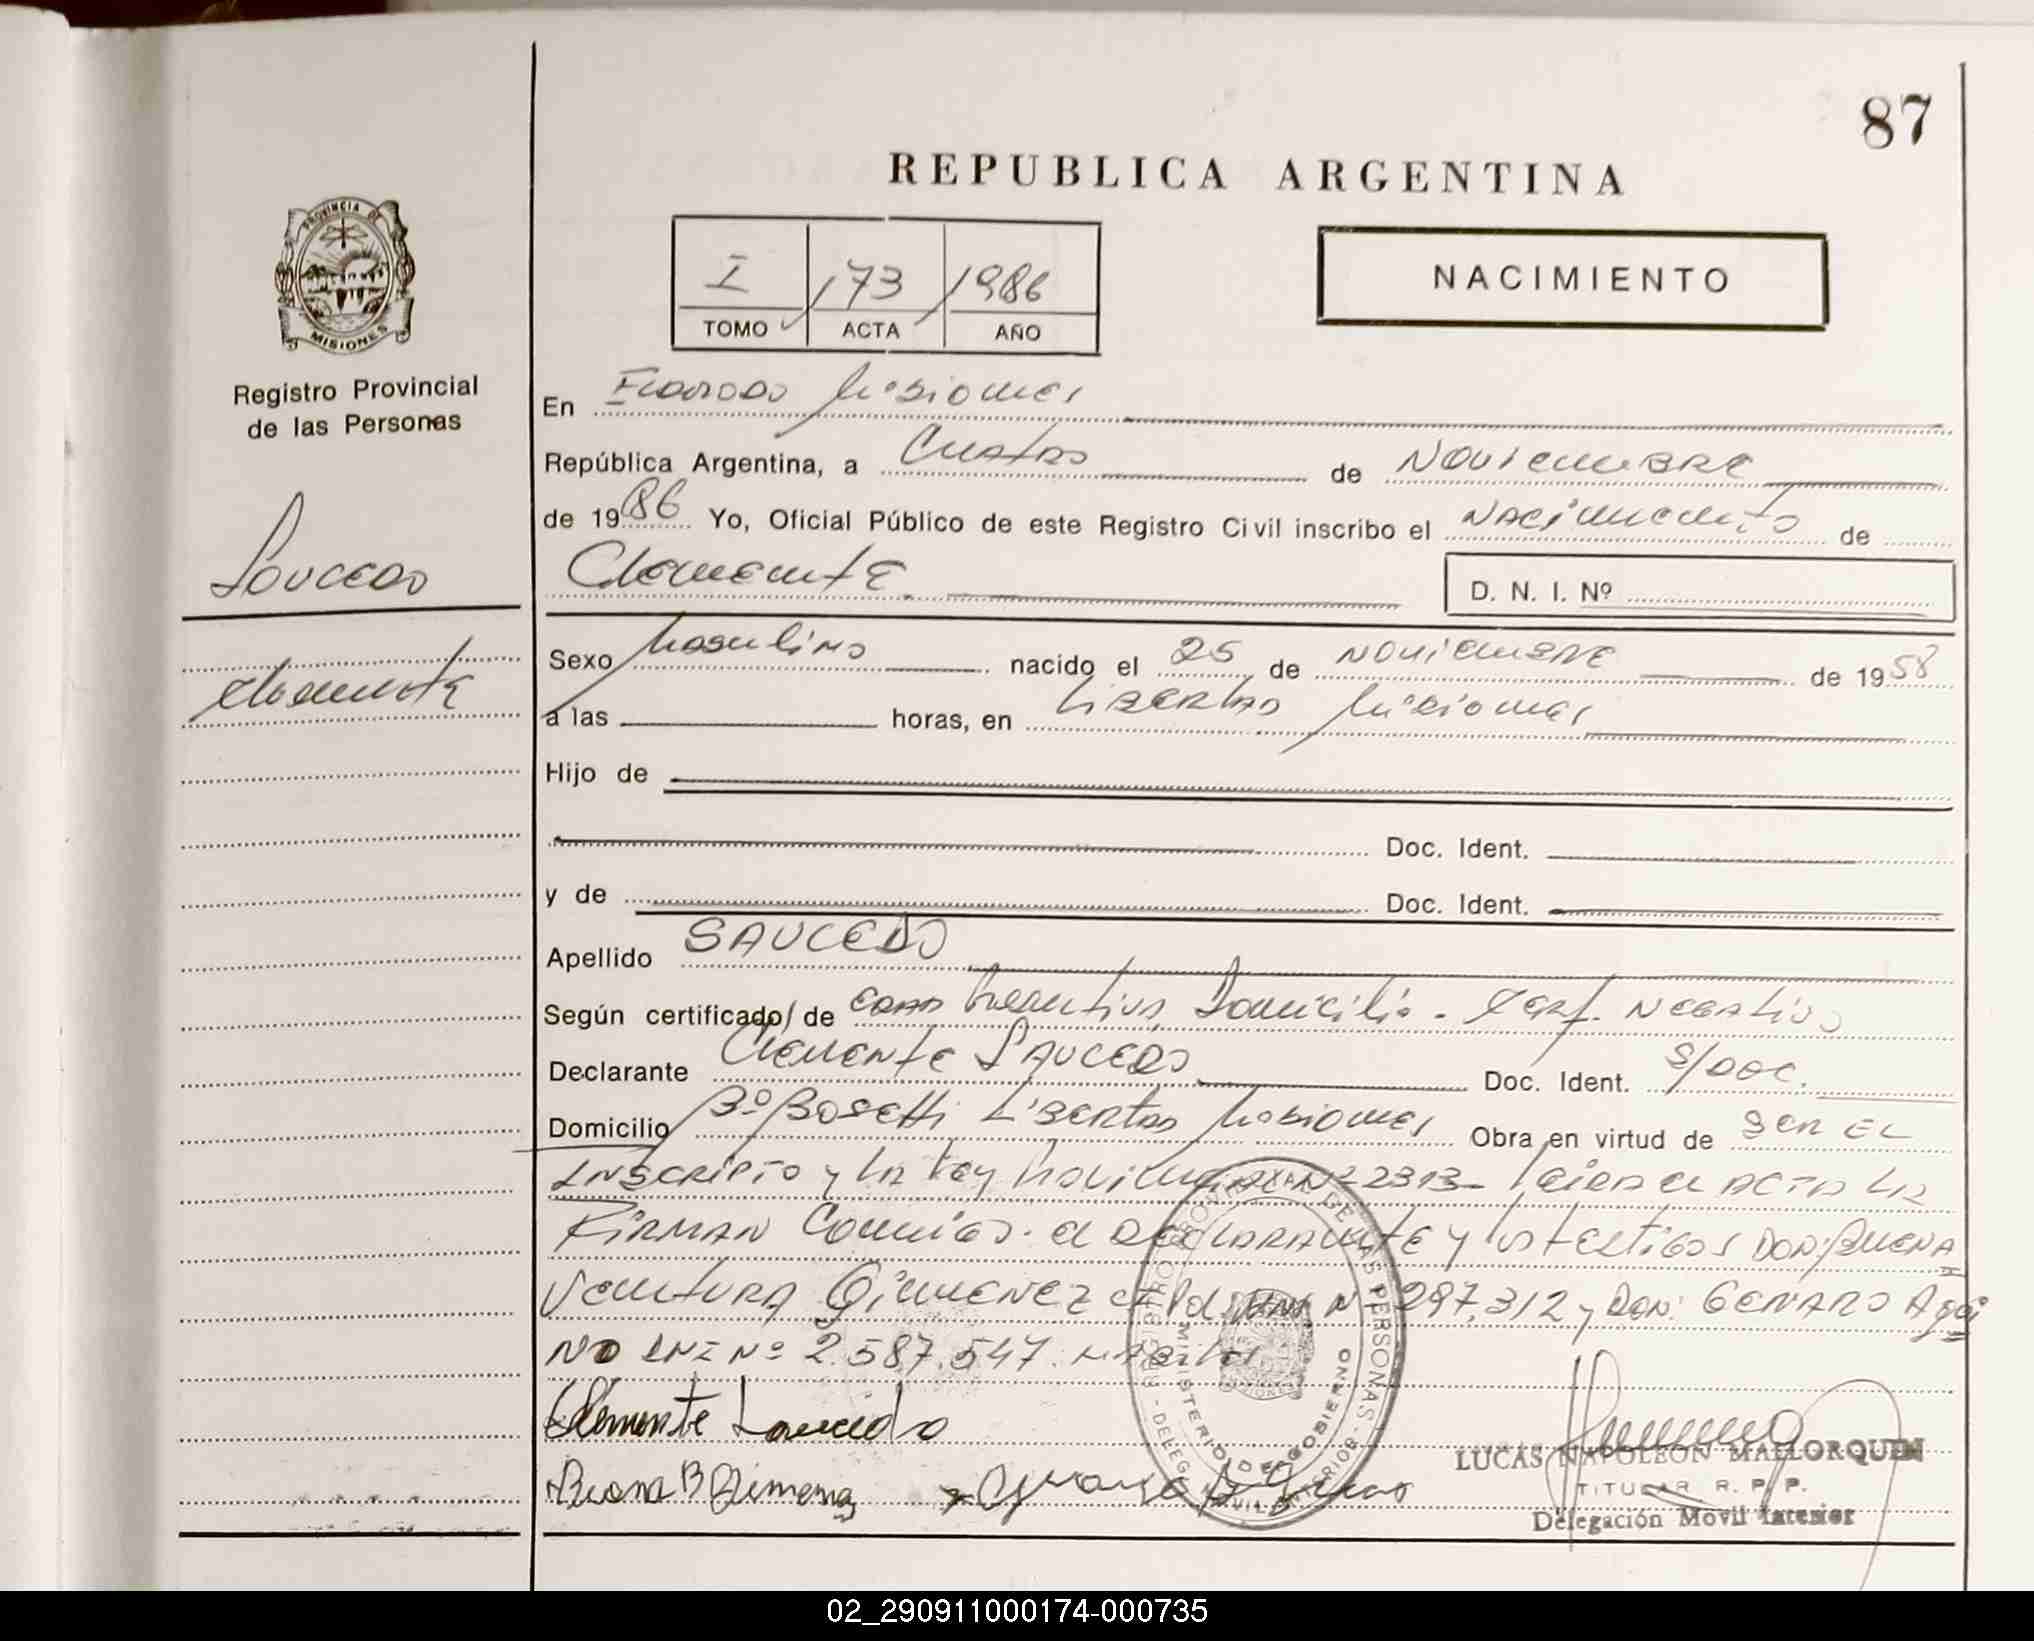 87
REPUBLICA ARGENTINA
I 173 1986
TOMO ACTA AÑO
NACIMIENTO
PROVINCIA DE
MISIONES
Registro Provincial
de las Personas
Saucedo
Clemente
En Eldorado Misiones
República Argentina, a Cuatro de Noviembre
de 1986 Yo, Oficial Público de este Registro Civil inscribo el Nacimiento de
Clemente D. N. I. Nº
Sexo Masculino nacido el 25 de Noviembre de 1958
a las horas, en Libertad Misiones
Hijo de
Doc. Ident.
y de Doc. Ident.
Apellido SAUCEDO
Según certificado/ de Domicilio - Cert. Negativo
Declarante Clemente Saucedo Doc. Ident. S/DOC.
Domicilio Bº Bosetti Libertad Misiones Obra en virtud de Ser EL
Inscripto y la Ley Provincial Nº 2313- Leida el Acta la
Firman Conmigo. el Declarante y los testigos Don: Buena
Ventura Gimenez 297.312 y Don: Genaro Aqui
no DNI Nº 2.587.547.
Clemente Saucedo
B Gimenez
REGISTRO PROVINCIAL DE LAS PERSONAS
MINISTERIO DE GOBIERNO
MISIONES
LUCAS NAPOLEON MALLORQUIN
TITULAR R. P. P.
Delegación Movil Interior
02_290911000174-000735